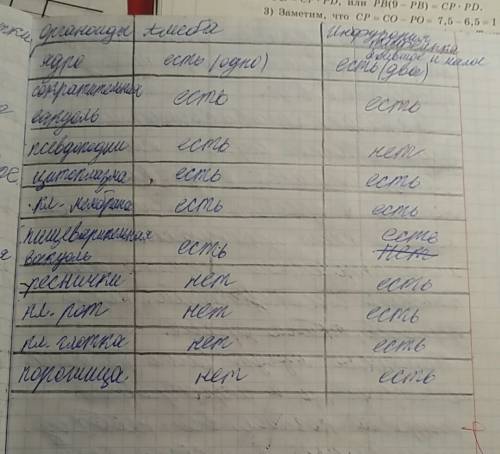 или PB(9 − PB) = CP · PD.
3) Заметим, что CP = CO − PO = 7,5 − 6,5 = 1
органоиды Амёба Инфузория туфелька
ядро есть (одно) большое и малое есть (два)
сократительная вакуоль есть есть
псевдоподии есть нет
цитоплазма есть есть
кл. мембрана есть есть
пищеварительная вакуоль есть есть нет
реснички нет есть
кл. рот нет есть
кл. глотка нет есть
порошица нет есть